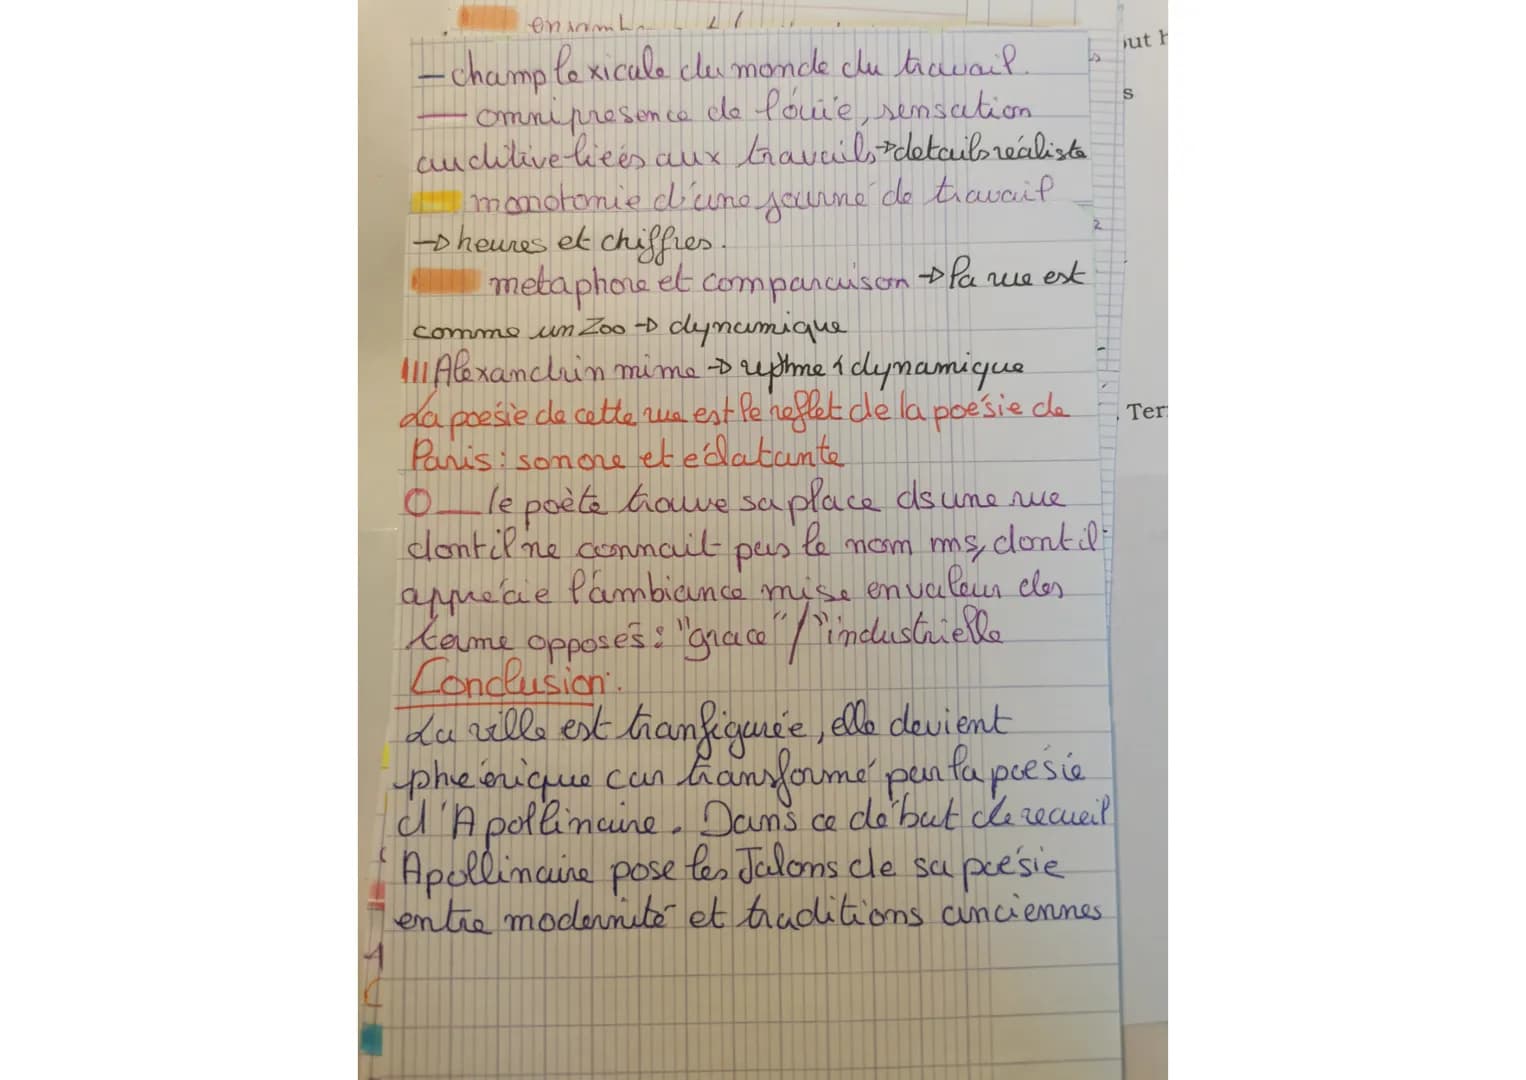 - champ lexicale du monde du travail.
- omniprésence de l'ouïe, sensation
auditive liées aux travails → details réaliste
monotomie d'une journé de travail
→ heures et chiffres.
metaphore et comparaison → la rue est
comme un Zoo → dynamique
III Alexandrin mime → rythme & dynamique
La poésie de cette rue est le reflet de la poésie de
Paris : sonore et éclatante
O le poète trouve sa place ds une rue
dont il ne connait pas le nom ms, dont il
apprécie l'ambiance mise en valeur des
terme opposés : "grace" / "industrielle
Conclusion :
La ville est tranfigurée, elle devient
phéérique car transformé par la poésie
d'Apollinaire. Dans ce début de recueil
Apollinaire pose les Jalons de sa poésie
entre modernité et traditions anciennes
out
s
2
Ter